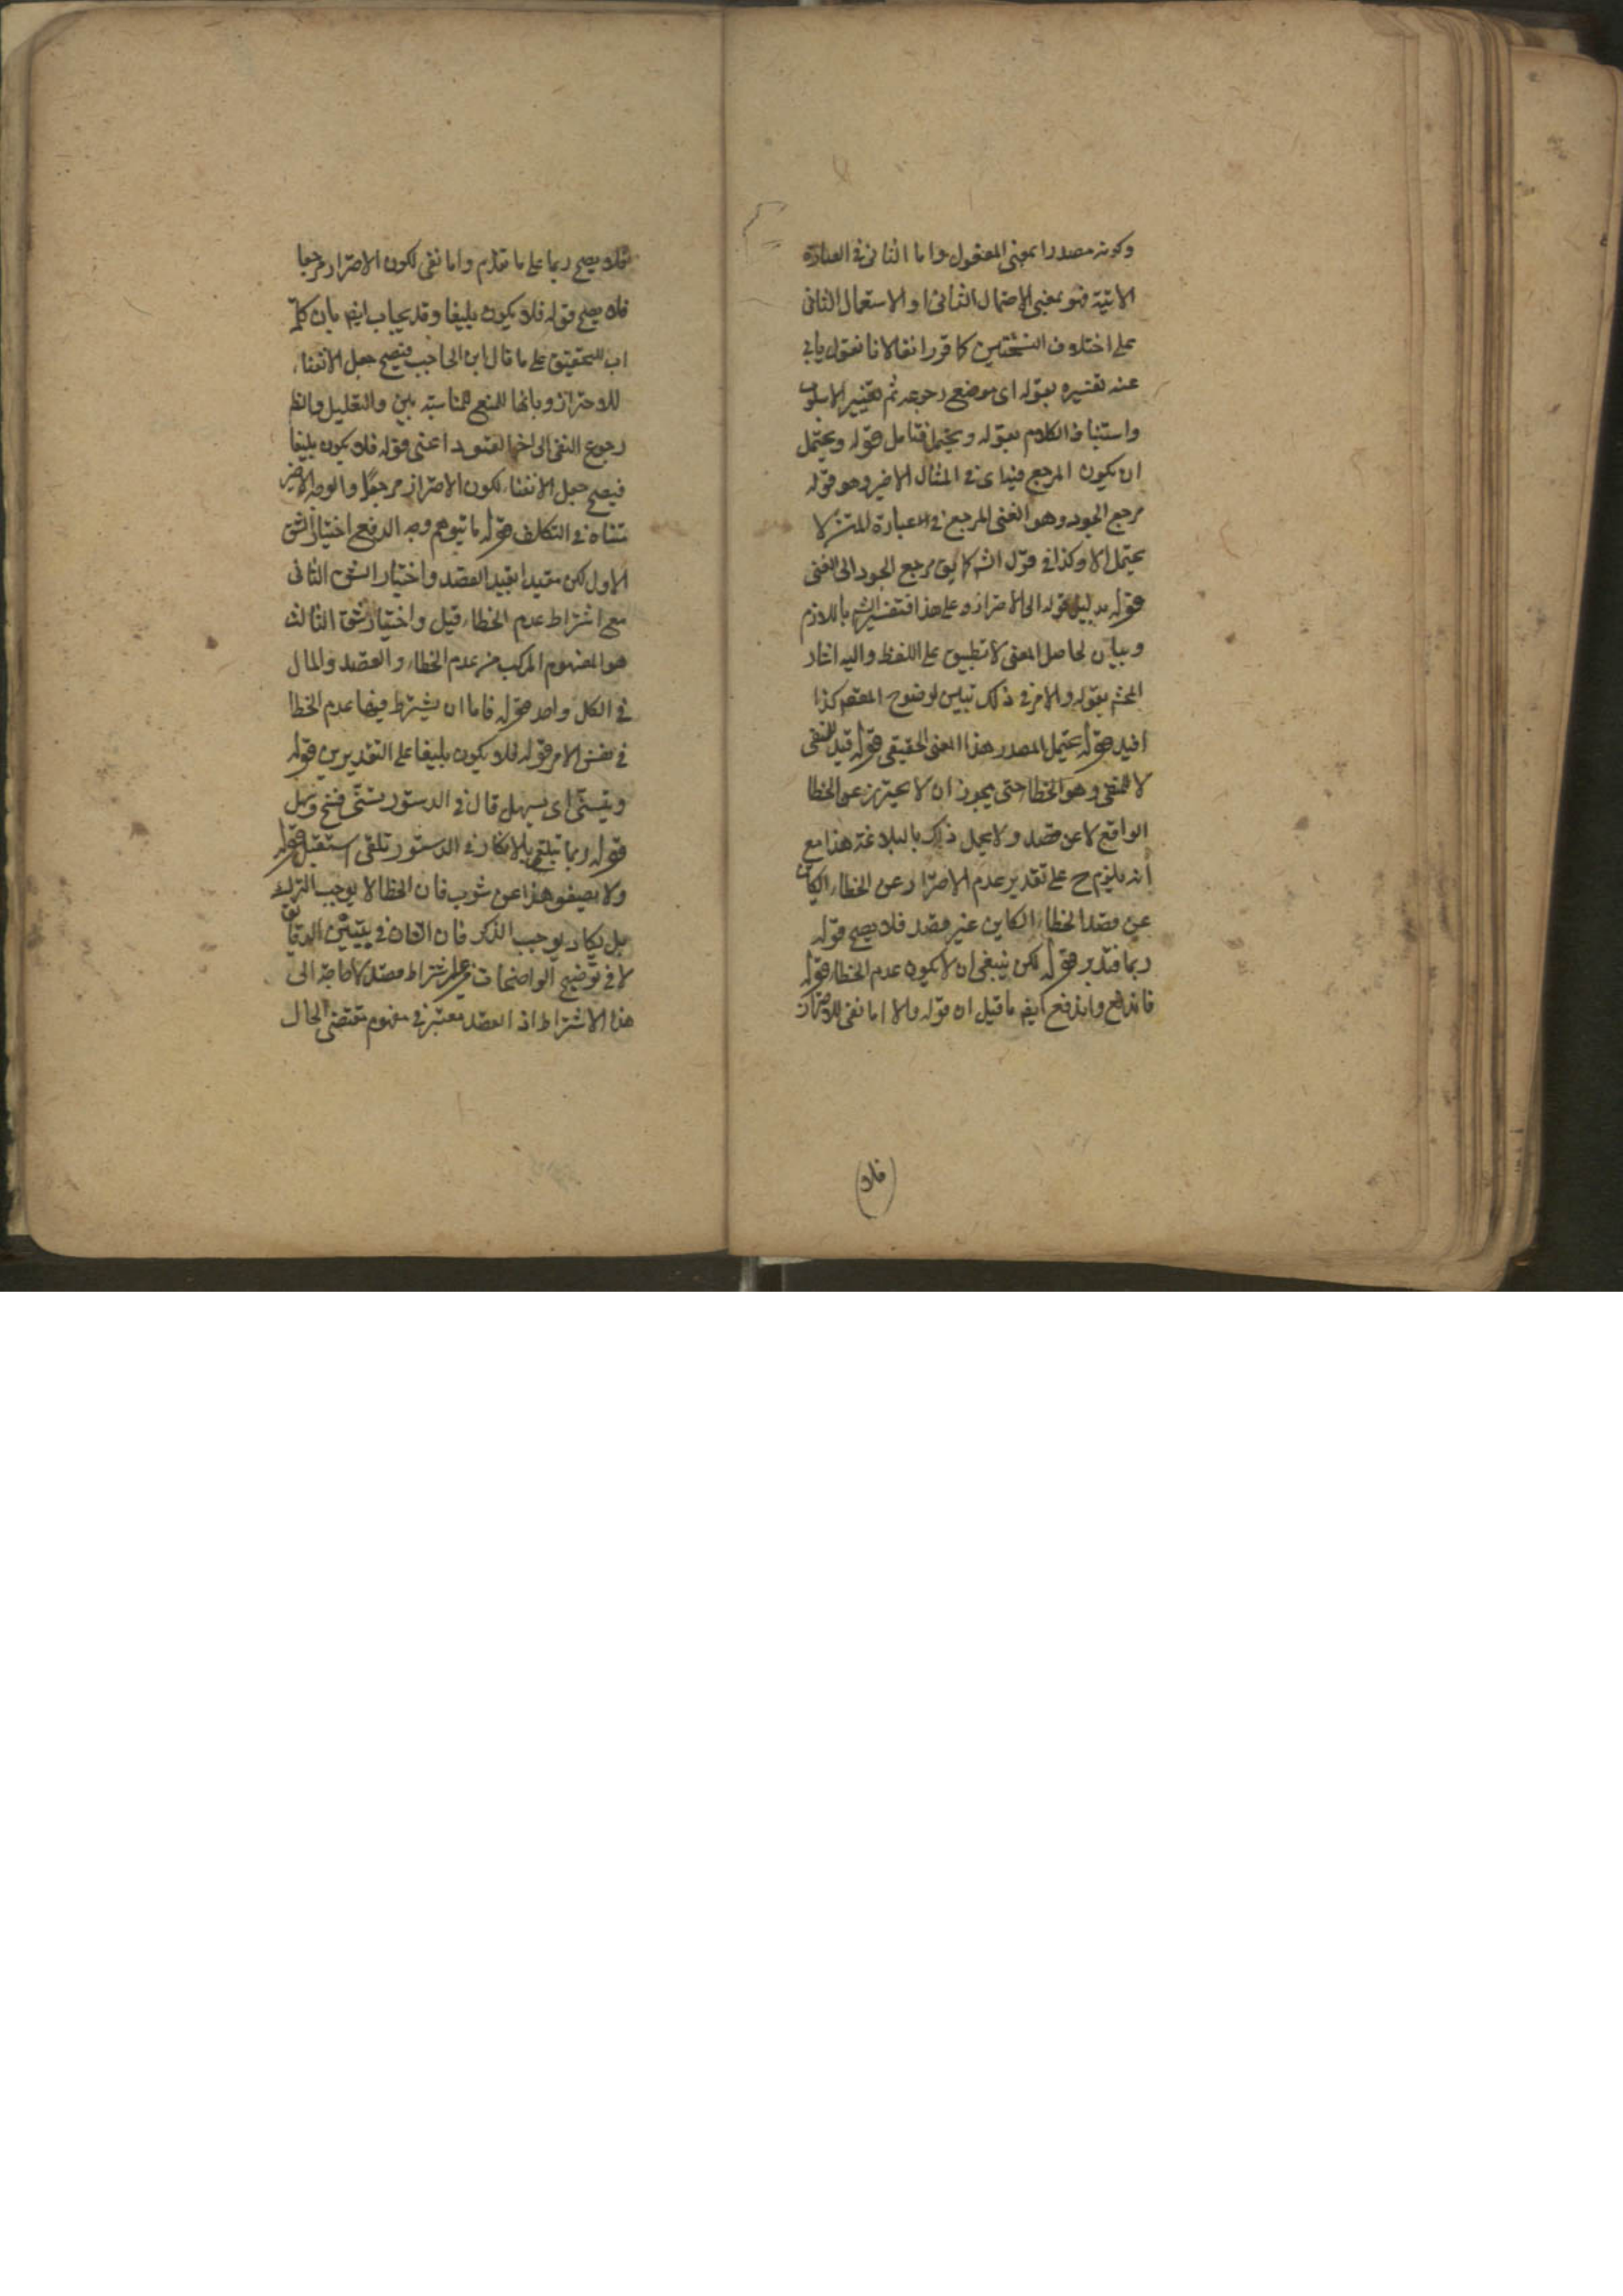 وكونه مصدرا بمعنى المفعول واما الثاني في العبارة
الاتية فهو بمعنى الاحتمال الثاني او الاستعمال الثاني
على اختلاف النسختين كما قرر انفا لانا نقول يابى
عنه تفسيره بقوله اى موضع رجوعه ثم تغيير الاسلوب
واستيناف الكلام بقوله ويحتمل فتامل قوله ويحتمل
ان يكون المرجع فيه اى في المثال الاخير وهو قوله
مرجع الجود وهو الغنى المرجع في العبارة للمتن لا
يحتمل الا وكذا في قول الش كما يق مرجع الجود الى الغنى
قوله بدليل قوله الى الاحتراز وعلى هذا فتفسير الش باللازم
وبيان لحاصل المعنى لا تطبيق على اللفظ واليه اشار
المحشى بقوله والامر في ذلك بين لوضوح المقصم كذا
افيد قوله يحتمل المصدر هذا المعنى الحقيقي قوله قيد للنفى
لا للمنفى وهو الخطا حتى يجوز ان لا يحترز عن الخطا
الواقع لا عن قصد ولا يخل ذلك بالبلاغة هذا مع
انه يلزم ح على تقدير عدم الاحتراز عن الخطاء الكاين
عن قصد الخطاء الكاين عن غير قصد فلا يصح قوله
ربما فتدبر قوله لكن ينبغى ان لا يكون عدم الخطاء قوله
فاندفع واندفع ايضا ما قيل ان قوله والا اما نفى للاحتراز
فلا
فلا يصح ربما على ما تقدم واما نفى لكون الاحتراز مرجعا
فلا يصح قوله فلا يكون بليغا وقد يجاب ايضا بان كلمة
رب للتحقيق على ما قال ابن الحاجب فيصح جعل الانتفاء
للاحتراز وبانها للمنع للمناسبة بين والتعليل والنظم
رجوع النفى الى اخر القيود اعنى قوله فلا يكون بليغا
فيصح جعل الانتفاء لكون الاحتراز مرجعا والوجه الاخير
متناه في التكلف قوله ما يتوهم وجه الدفع اختيار الشق
الاول لكن مقيدا بقيد القصد واختيار الشق الثاني
مع اشتراط عدم الخطاء قيل واختيار شق الثالث
هو المفهوم المركب من عدم الخطاء والقصد والمال
في الكل واحد قوله فاما ان يشترط فيها عدم الخطا
في نفس الامر قوله فلا يكون بليغا على التقديرين قوله
ويتسنى اى يسهل قال في الدستور تسنى فتح وسهل
قوله ربما تتلقى بالانكار في الدستور تلقى استقبل قوله
ولا يصفو هذا عن شوب فان الخطا لا يوجب الترك
بل يكاد يوجب الذكر فان الشان في تبيين الدقايق
لا في توضيح الواضحات اشتراط قصد لا حاجة الى
هذا الاشتراط اذ القصد معتبر في مفهوم مقتضى الحال